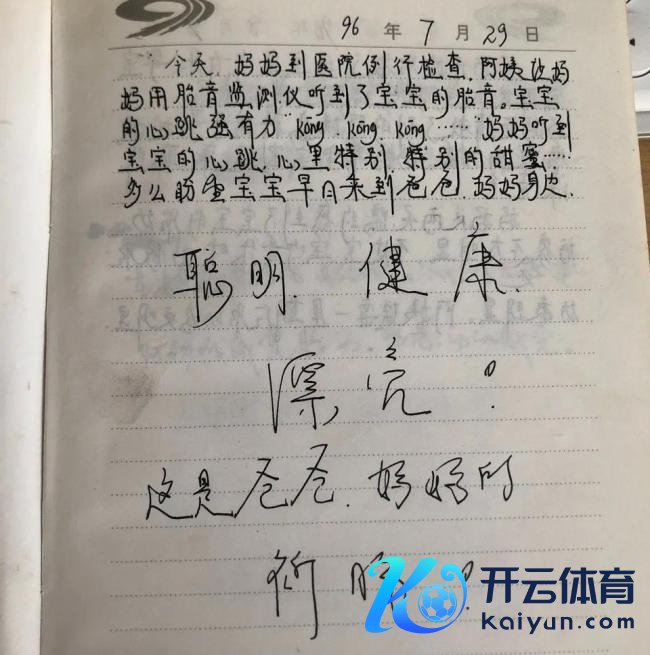 96 年 7 月 29 日
今天,妈妈到医院例行检查,阿姨让妈
妈用胎音监测仪听到了宝宝的胎音。宝宝
的心跳强有力 kōng kōng kōng …… 妈妈听到
宝宝的心跳,心里特别、特别的甜蜜……
多么盼望宝宝早日来到爸爸、妈妈身边
聪明、健康、
漂亮!
这是爸爸、妈妈的
祈
开云体育
kaiyun.com